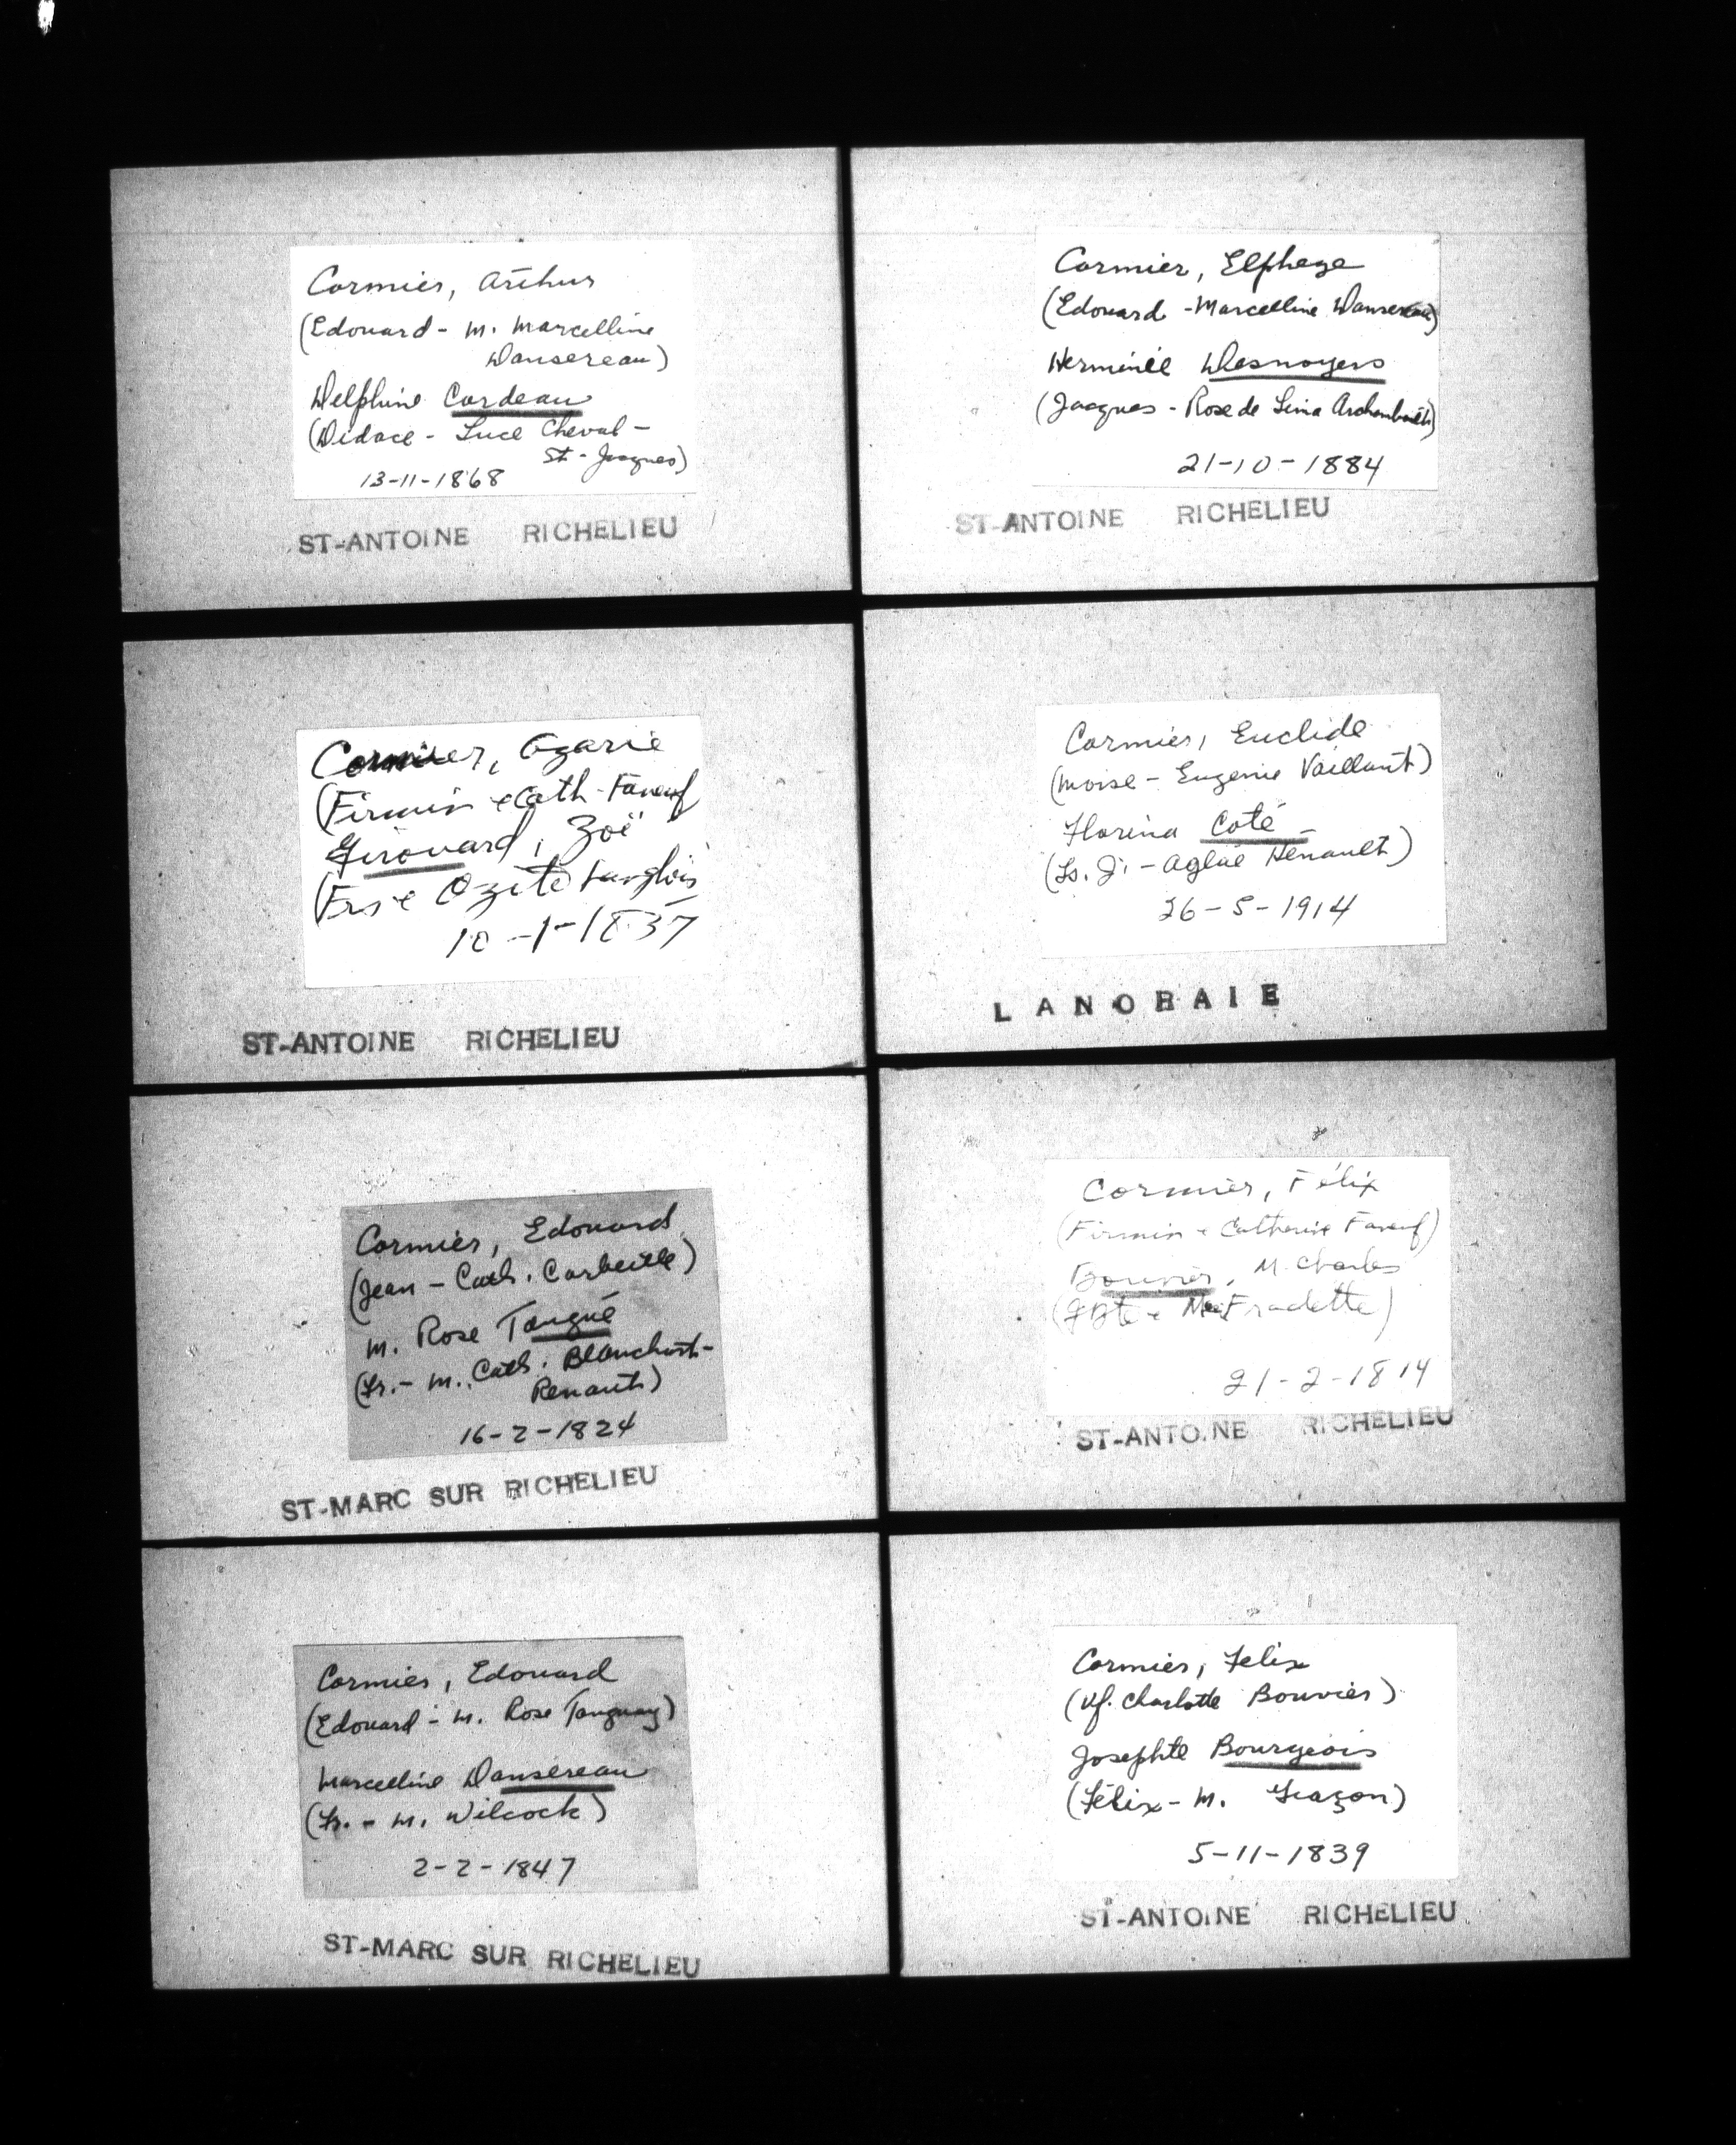 Cormier, Arthur
(Edouard - M. Marcelline
Dansereau)
Delphine Cordeau
(Didace - Luce Cheval -
St-Jacques)
13-11-1868
ST-ANTOINE RICHELIEU
Cormier, Azarie
(Firmin & Cath-Faneuf
Girouard, Zoë
(Frs & Ozite Langlois
10-1-1837
ST-ANTOINE RICHELIEU
Cormier, Edouard
(Jean - Cath. Corbeille)
M. Rose Tangué
(Fr. - M. Cath. Blanchart-
Renault)
16-2-1824
ST-MARC SUR RICHELIEU
Cormier, Edouard
(Edouard - M. Rose Tanguay)
Marcelline Dansereau
(Fr. - M. Wilcock)
2-2-1847
ST-MARC SUR RICHELIEU
Cormier, Elphege
(Edouard - Marcelline Dansereau)
Herminie Desnoyers
(Jacques - Rose de Lima Archambault)
21-10-1884
ST-ANTOINE RICHELIEU
Cormier, Euclide
(Moise - Eugenie Vaillant)
Florina Coté
(Ls. J. - Aglaé Henault)
26-5-1914
LANORAIE
Cormier, Félix
(Firmin & Catherine Faneuf)
Bouvier, M. Charles
(JBte & Fradette)
21-2-1814
ST-ANTOINE RICHELIEU
Cormier, Felix
(Vf. Charlotte Bouvier)
Josephte Bourgeois
(Félix - M. Gazon)
5-11-1839
ST-ANTOINE RICHELIEU